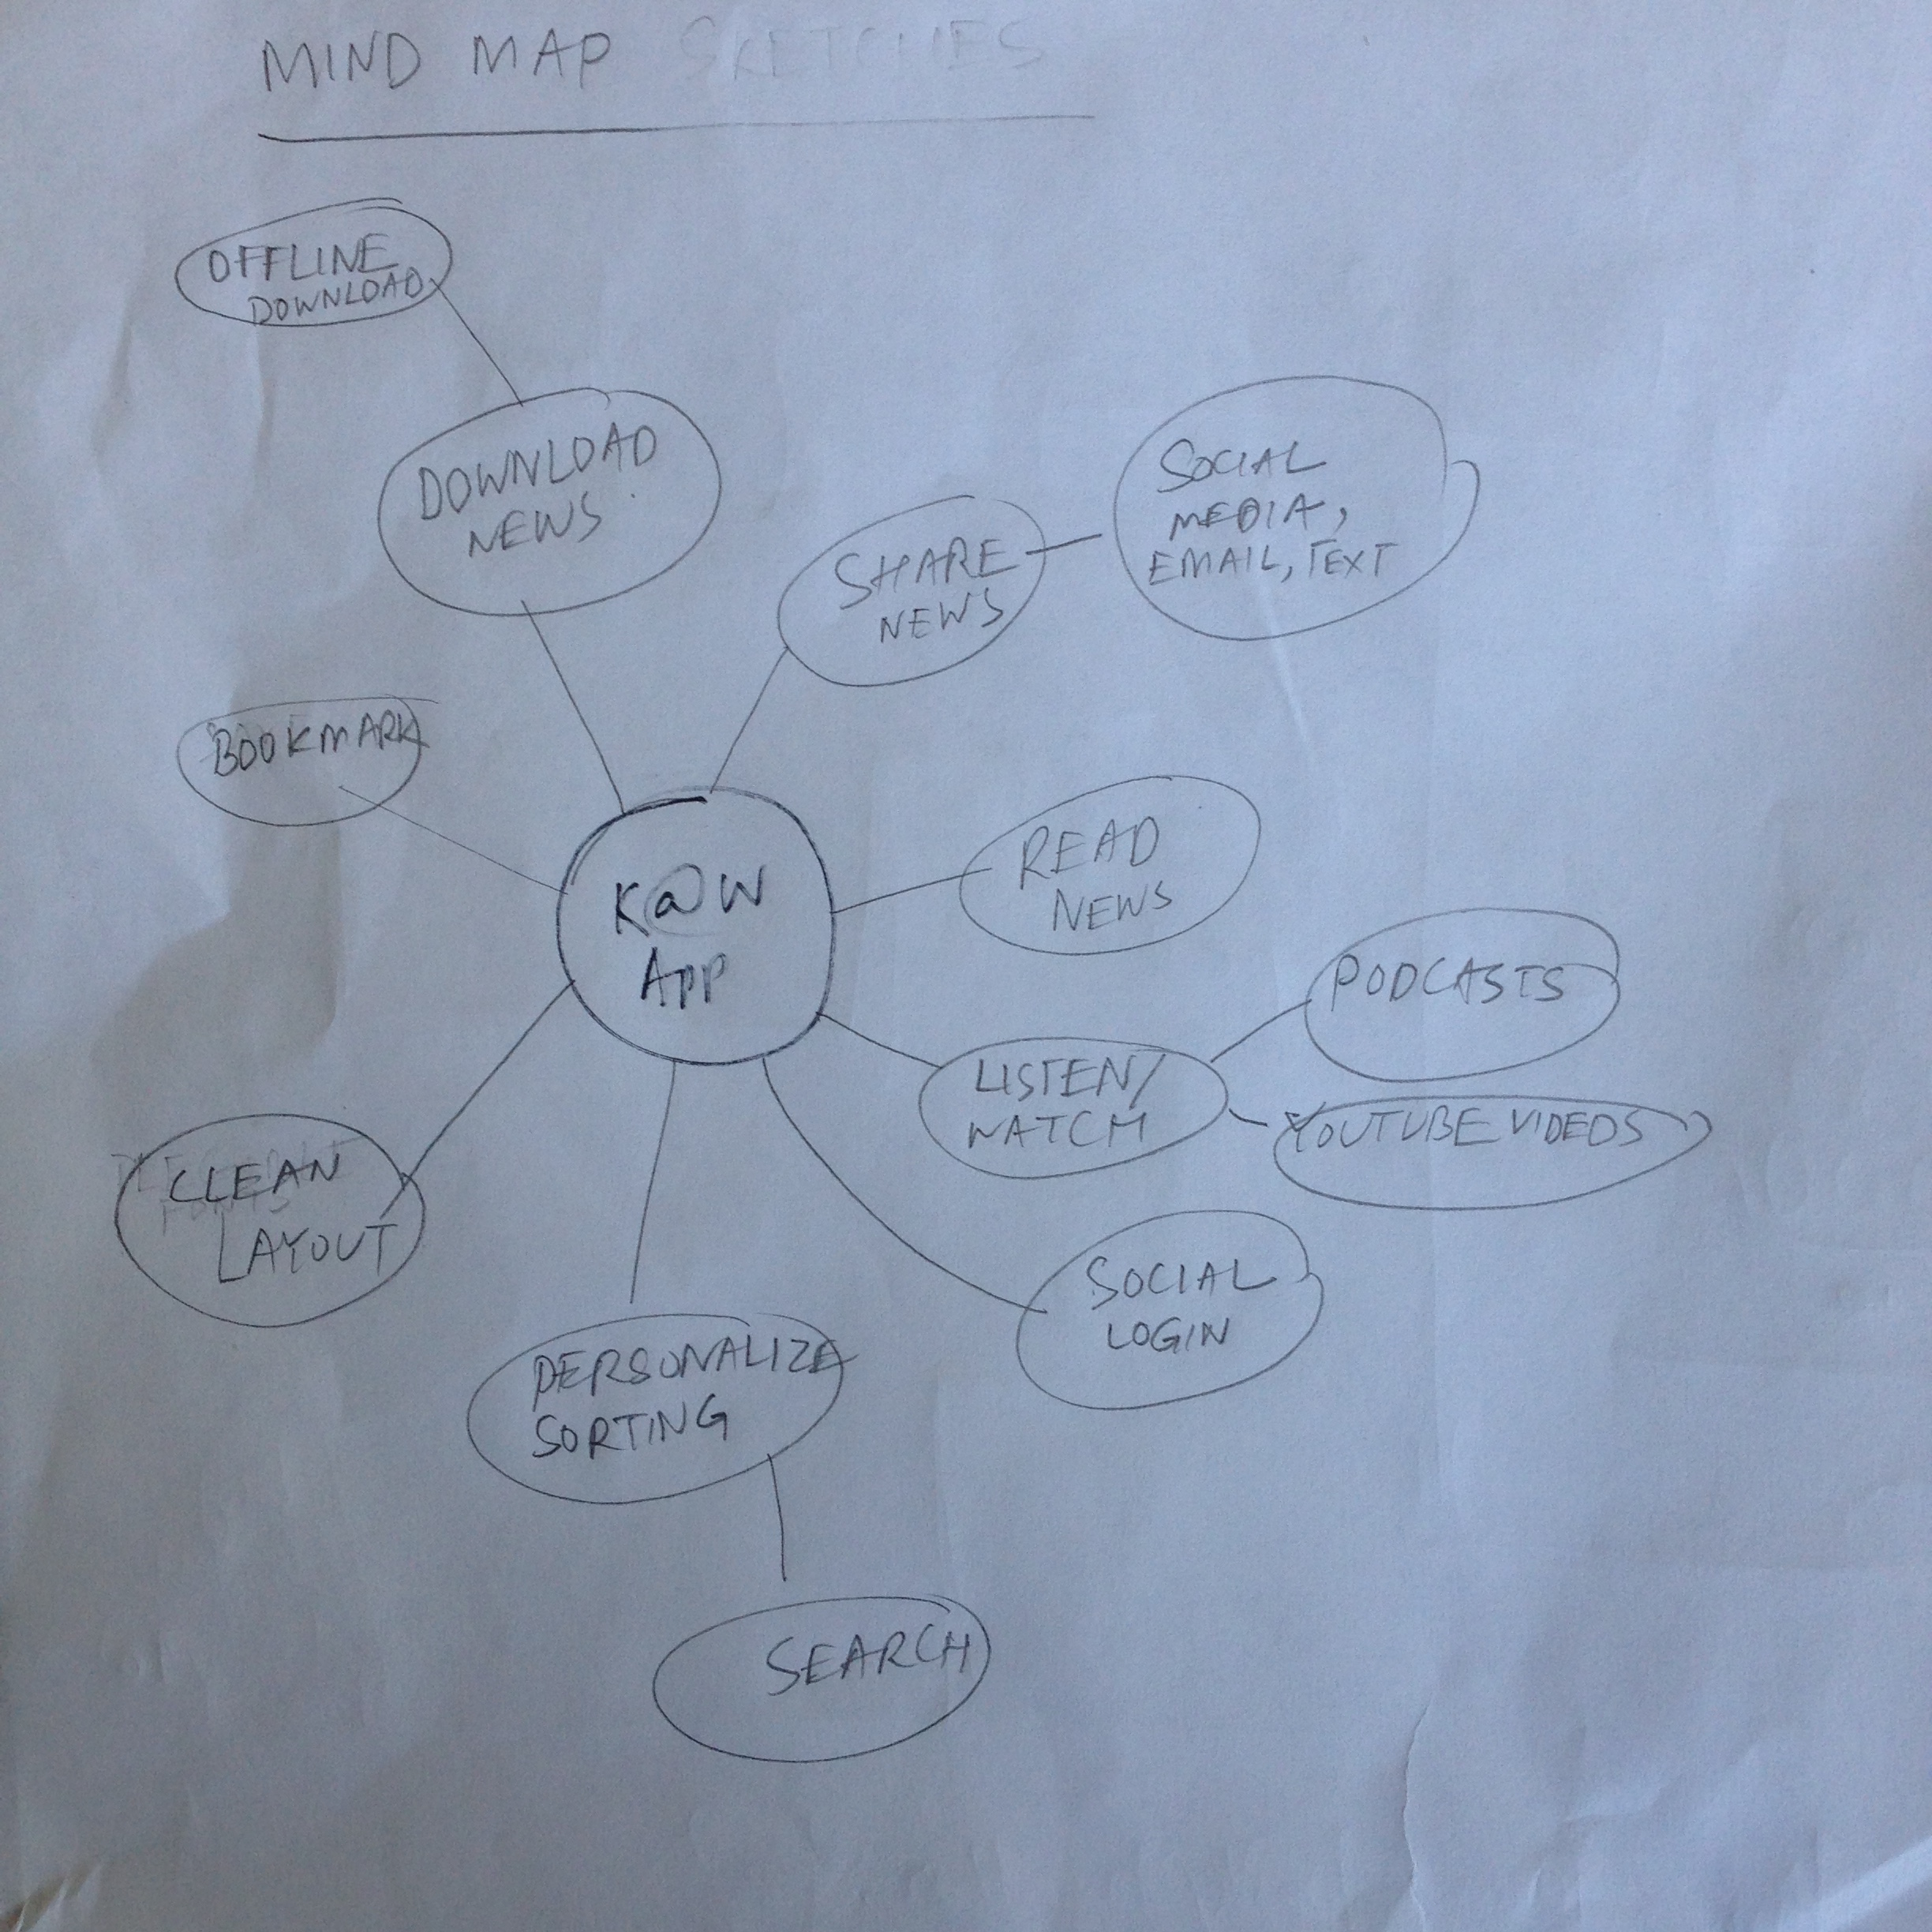 MIND MAP SKETCHES
OFFLINE
DOWNLOAD
DOWNLOAD
NEWS
SOCIAL
MEDIA,
EMAIL, TEXT
SHARE
NEWS
BOOKMARK
READ
NEWS
K@W
APP
PODCASTS
LISTEN/
WATCH
YOUTUBE VIDEOS
CLEAN
LAYOUT
SOCIAL
LOGIN
PERSONALIZE
SORTING
SEARCH